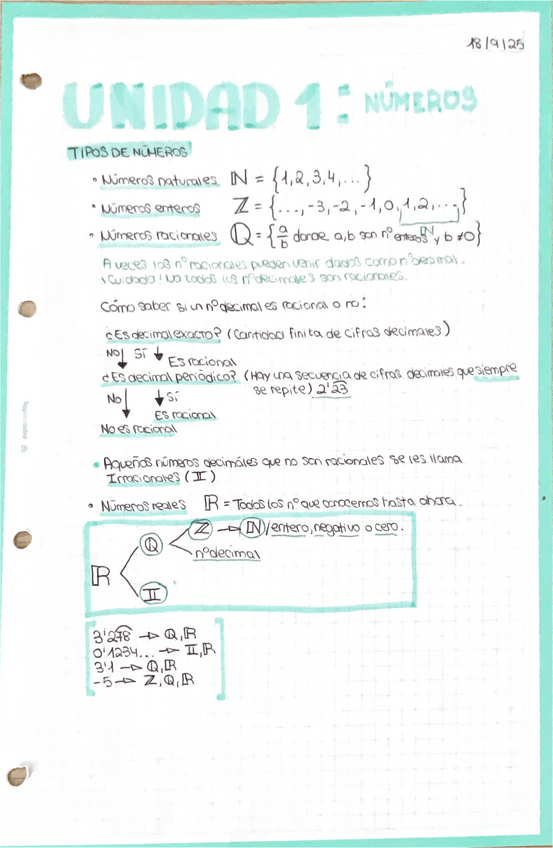 18/9/25
UNIDAD 1: NÚMEROS
TIPOS DE NÚMEROS
• Números naturales ℕ = {1,2,3,4,...}
• Números enteros ℤ = {..., -3, -2, -1, 0, 1, 2, ...}
ℕ
• Números racionales ℚ = {a/b donde a, b son nº enteros y b ≠ 0}
A veces los nº racionales pueden venir dados como nº decimal.
¡Cuidado! No todos los nº decimales son racionales.
Cómo saber si un nº decimal es racional o no:
¿Es decimal exacto? (Cantidad finita de cifras decimales)
No Sí
Es racional
¿Es decimal periódico? (Hay una secuencia de cifras decimales que siempre
se repite) 2'23
No Sí
Es racional
No es racional
• Aqueños números decimáles que no son racionales se les llama
Irracionales (𝕀)
• Números reales ℝ = Todos los nº que conocemos hasta ahora.
ℝ ℚ ℤ → ℕ/entero, negativo o cero.
nº decimal
𝕀
3'278 → ℚ, ℝ
0'1234... → 𝕀, ℝ
3'1 → ℚ, ℝ
-5 → ℤ, ℚ, ℝ